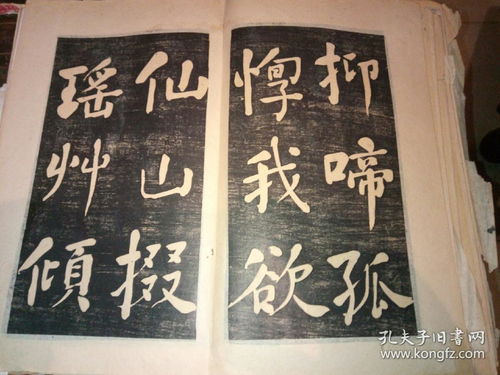 抑啼孤
惸我欲
仙山掇
瑶艸傾
孔夫子旧书网
www.kongfz.com